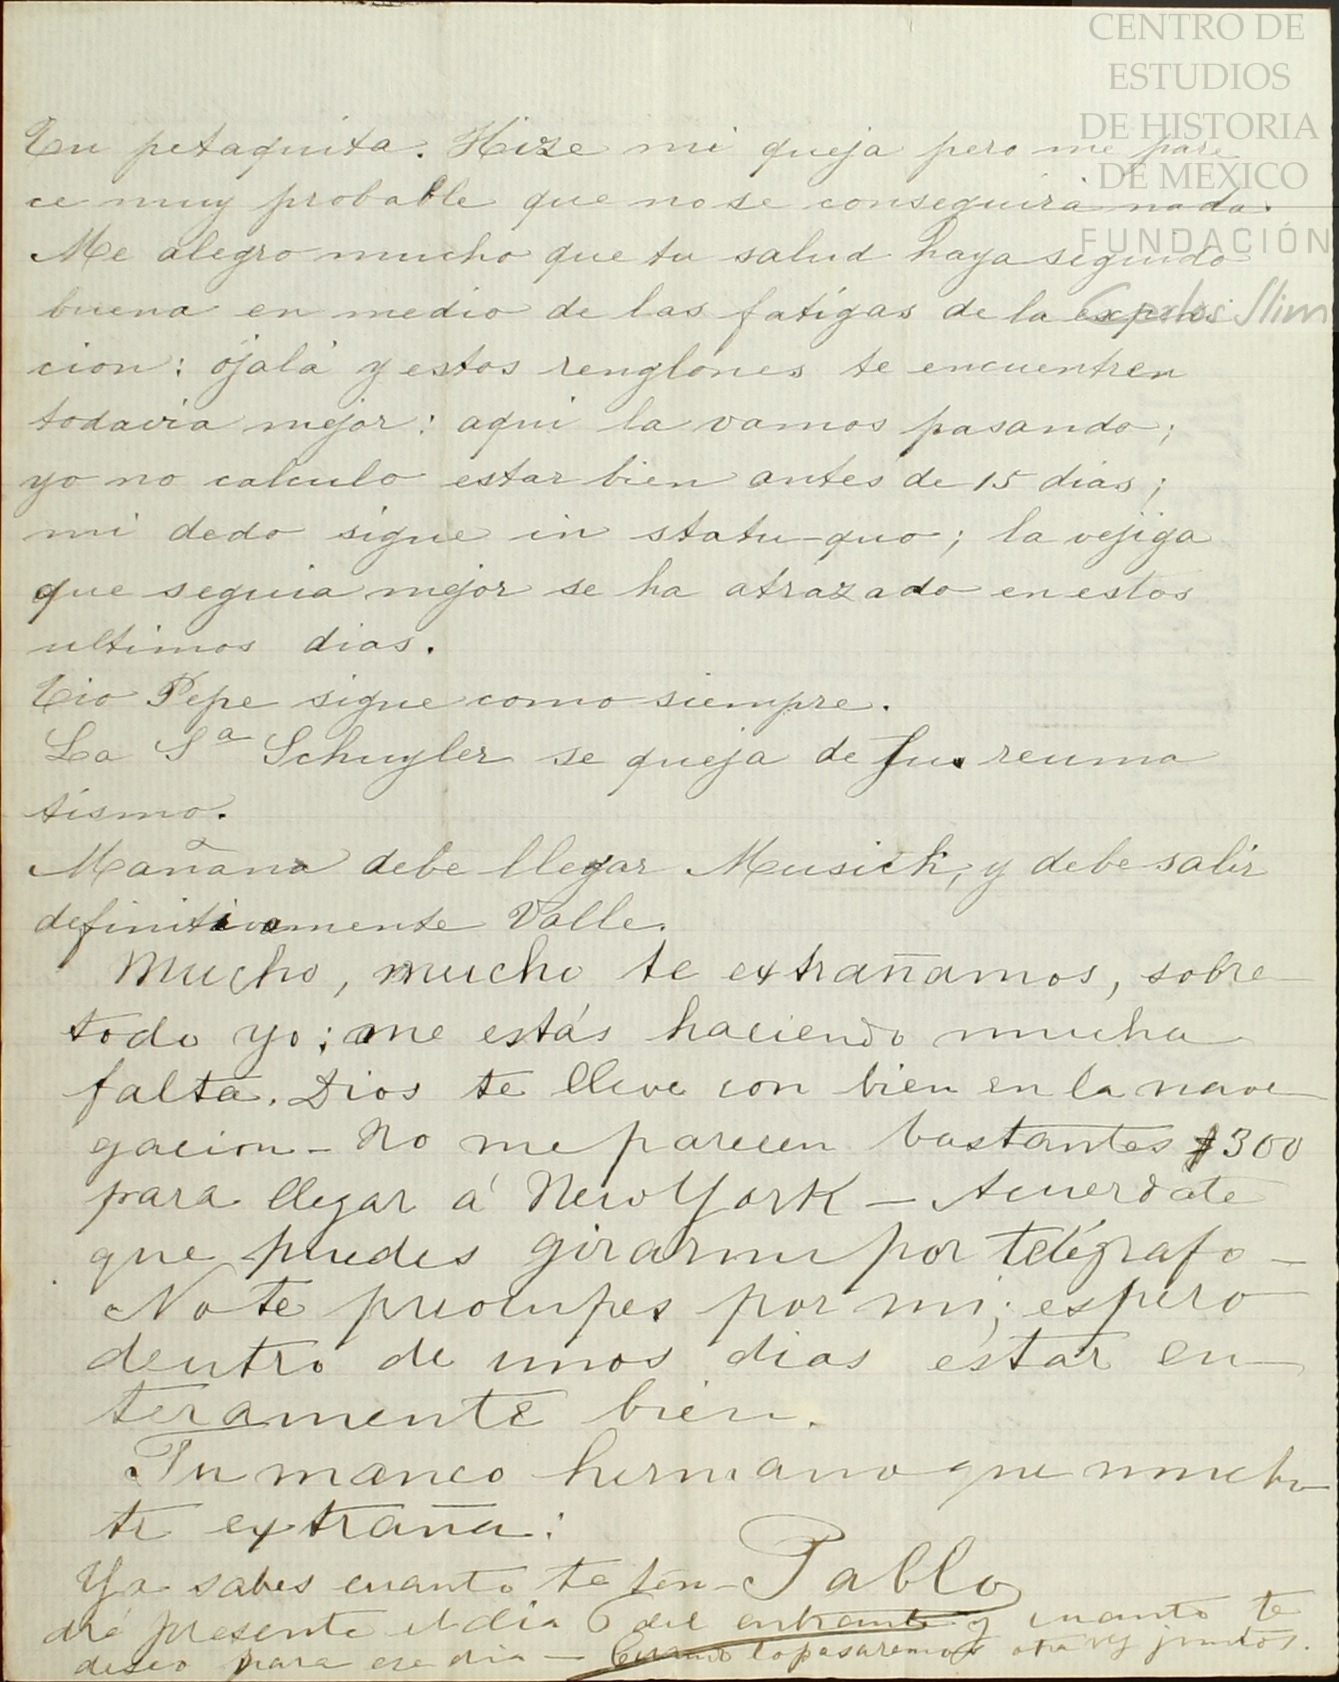 CENTRO DE
ESTUDIOS
DE HISTORIA
DE MEXICO
FUNDACIÓN
Carlos Slim
Tu petaquita. Hize mi queja pero me pare
ce muy probable que no se conseguirá nada.
Me alegro mucho que tu salud haya seguido
buena en medio de las fatigas de la
cion: ójalá y estos renglones te encuentren
todavia mejor: aqui la vamos pasando;
yo no calculo estar bien antes de 15 dias;
mi dedo sigue in statu-quo; la vejiga
que seguia mejor se ha atrazado en estos
ultimos dias.
Tio Pepe sigue como siempre.
La Sª Schuyler se queja de su reuma
tismo.
Mañana debe llegar Musick, y debe salir
definitivamente Valle.
Mucho, mucho te extrañamos, sobre
todo yo; me estás haciendo mucha
falta. Dios te lleve con bien en la nave
gacion - No me parecen bastantes $300
para llegar á New York - Acuerdate
que puedes girarme por telégrafo -
No te preocupes por mi; espero
dentro de unos dias estar en
teramente bien.
Tu manco hermano que mucho
te extraña:
Pablo
Ya sabes cuanto te ten-
dré presente el dia 6 del entrante y cuanto te
deseo para ese dia - lo pasaremos otra vez juntos.